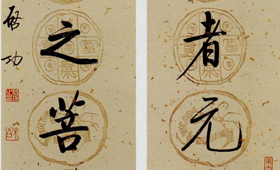 者元
之菩
啓功